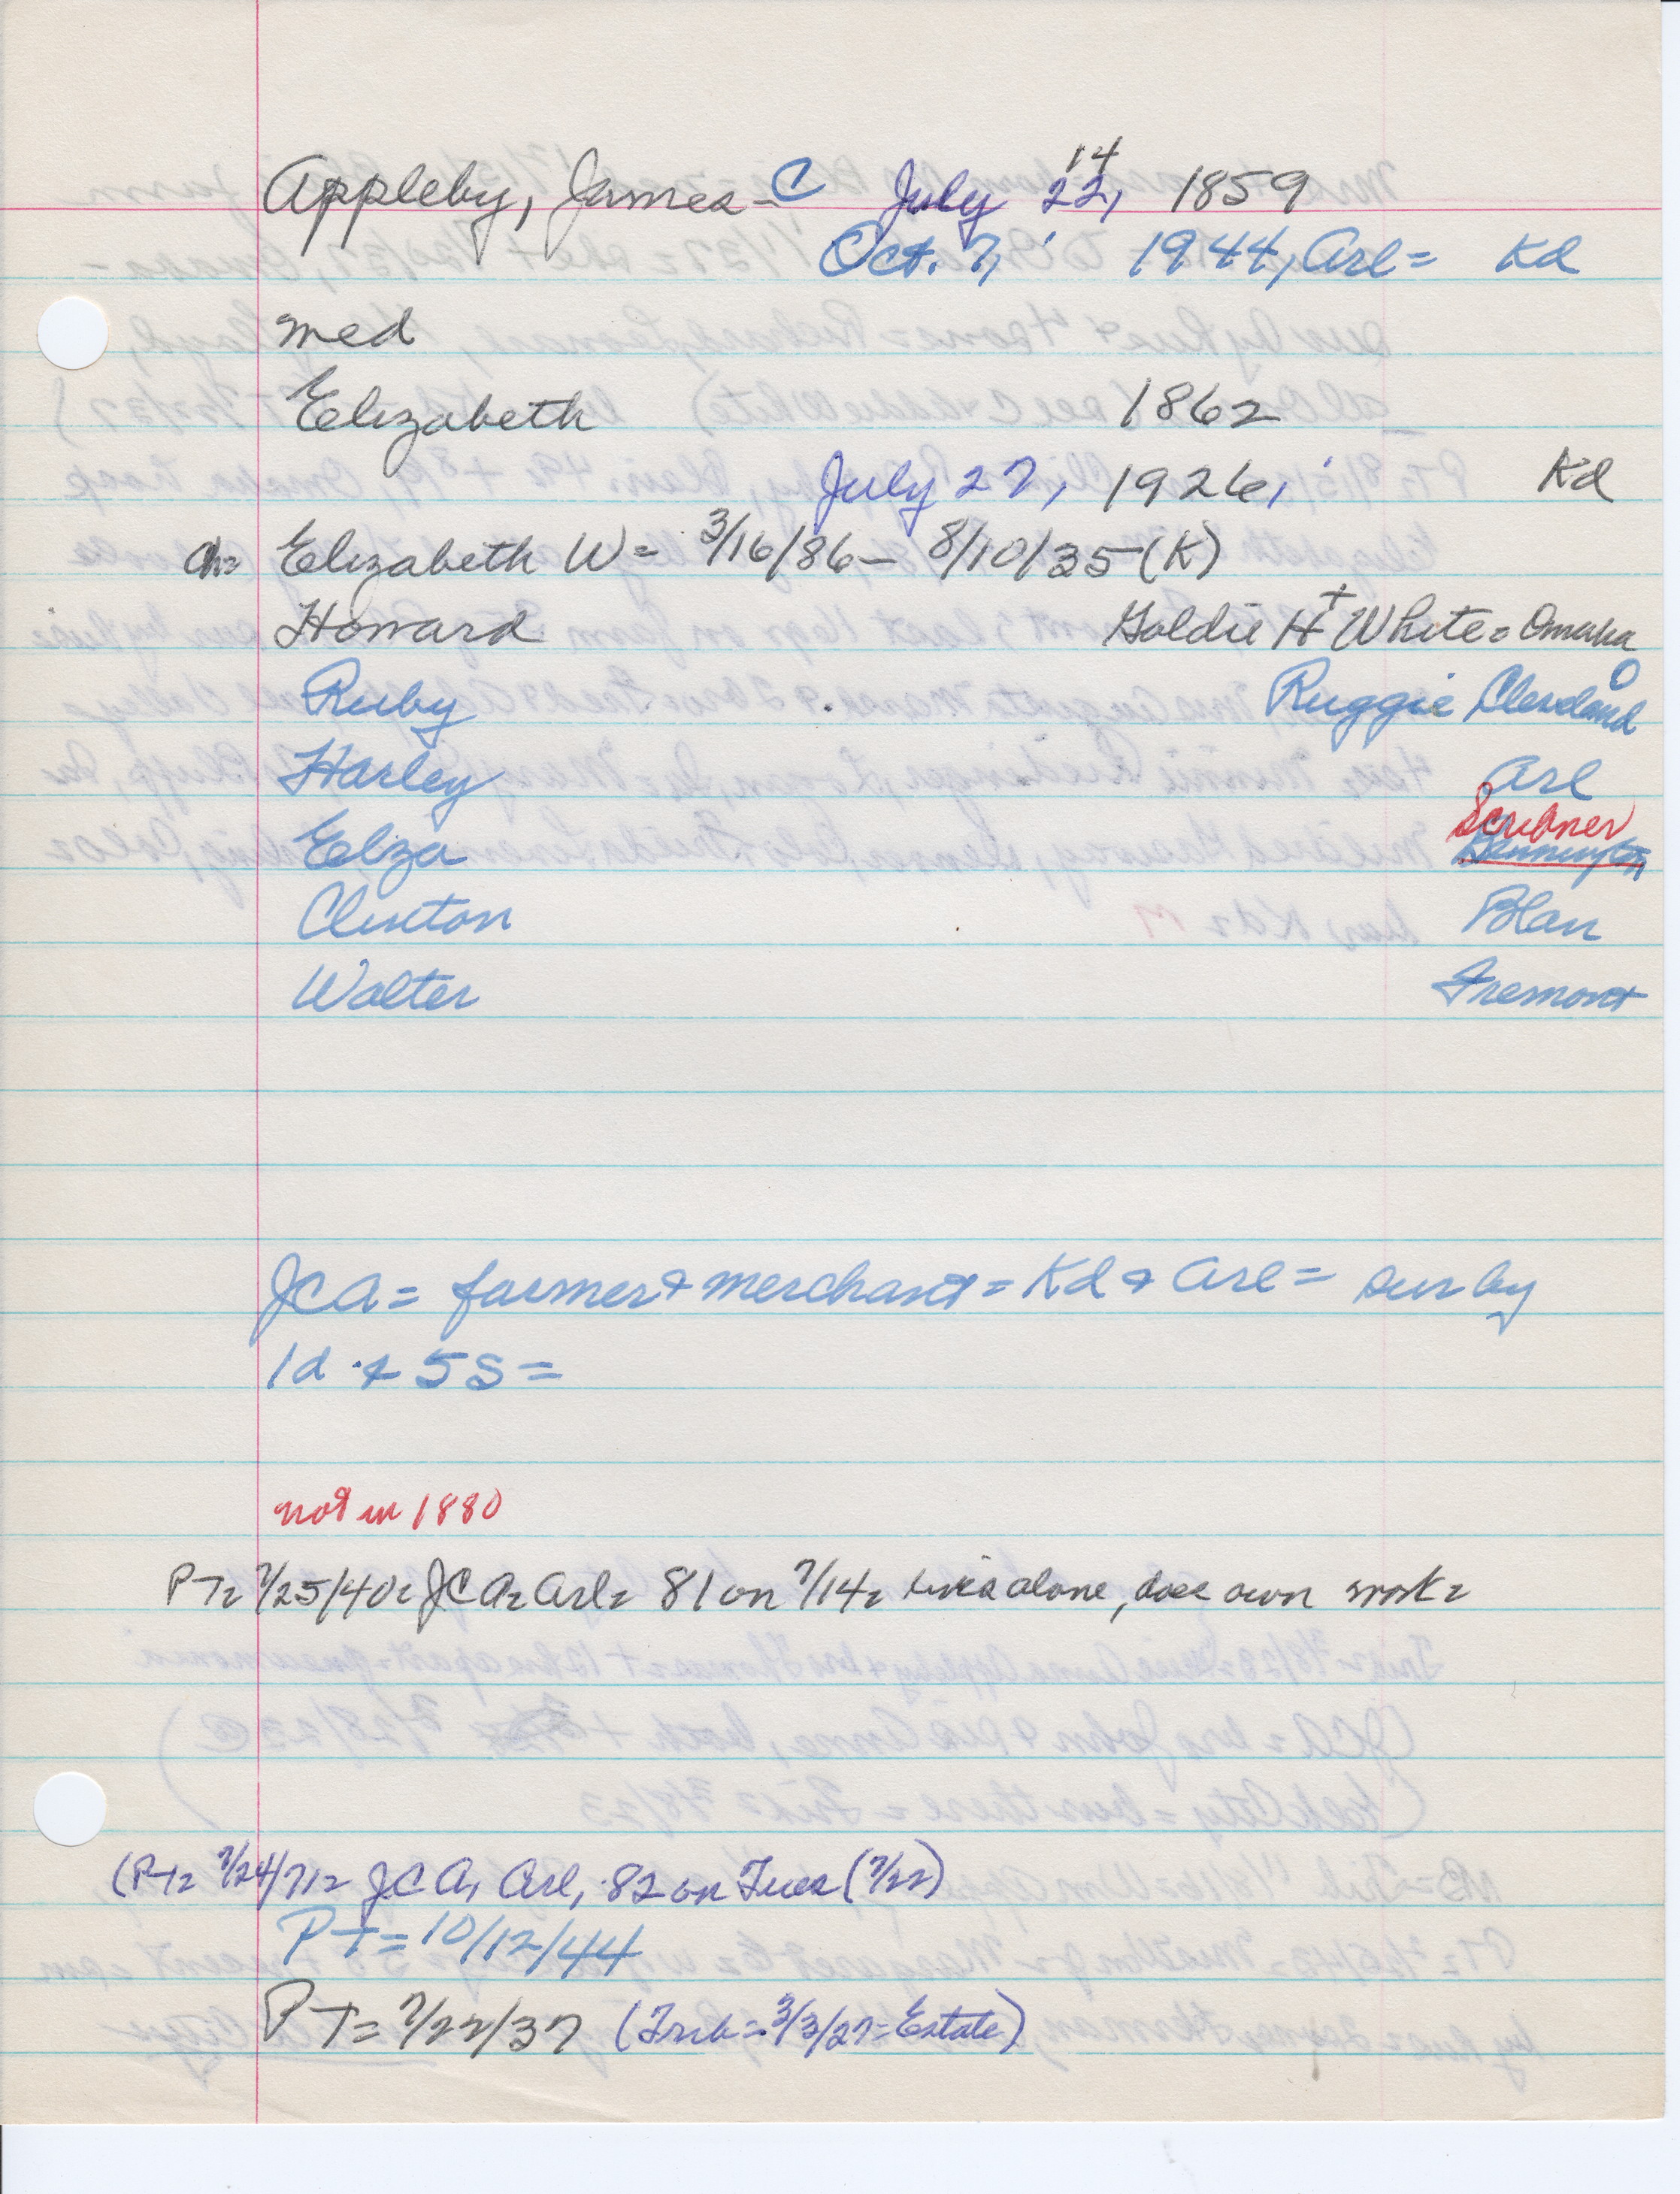 14
Appleby, James - C July 22, 1859
Oct. 7, 1944, Arl = Kd
med
Elizabeth 1862
July 27, 1926, Kd
ch= Elizabeth W = 3/16/86 - 8/10/35 (K)
Howard Goldie H + White = Omaha
Ruby Ruggie Cleveland O
Harley Arl
Scribner
Eliza Bennington
Clinton Blair
Walter Fremont
JCA = farmer & merchant = Kd & Arl = sur by
1d & 5s =
not in 1880
PT= 7/25/40= JCA= Arl= 81 on 7/14= lives alone, does own work=
(PT= 7/24/71= JCA, Arl, 82 on Tues (7/22)
PT = 10/12/44
PT = 7/22/37 (Trib = 3/3/27 = Estate)